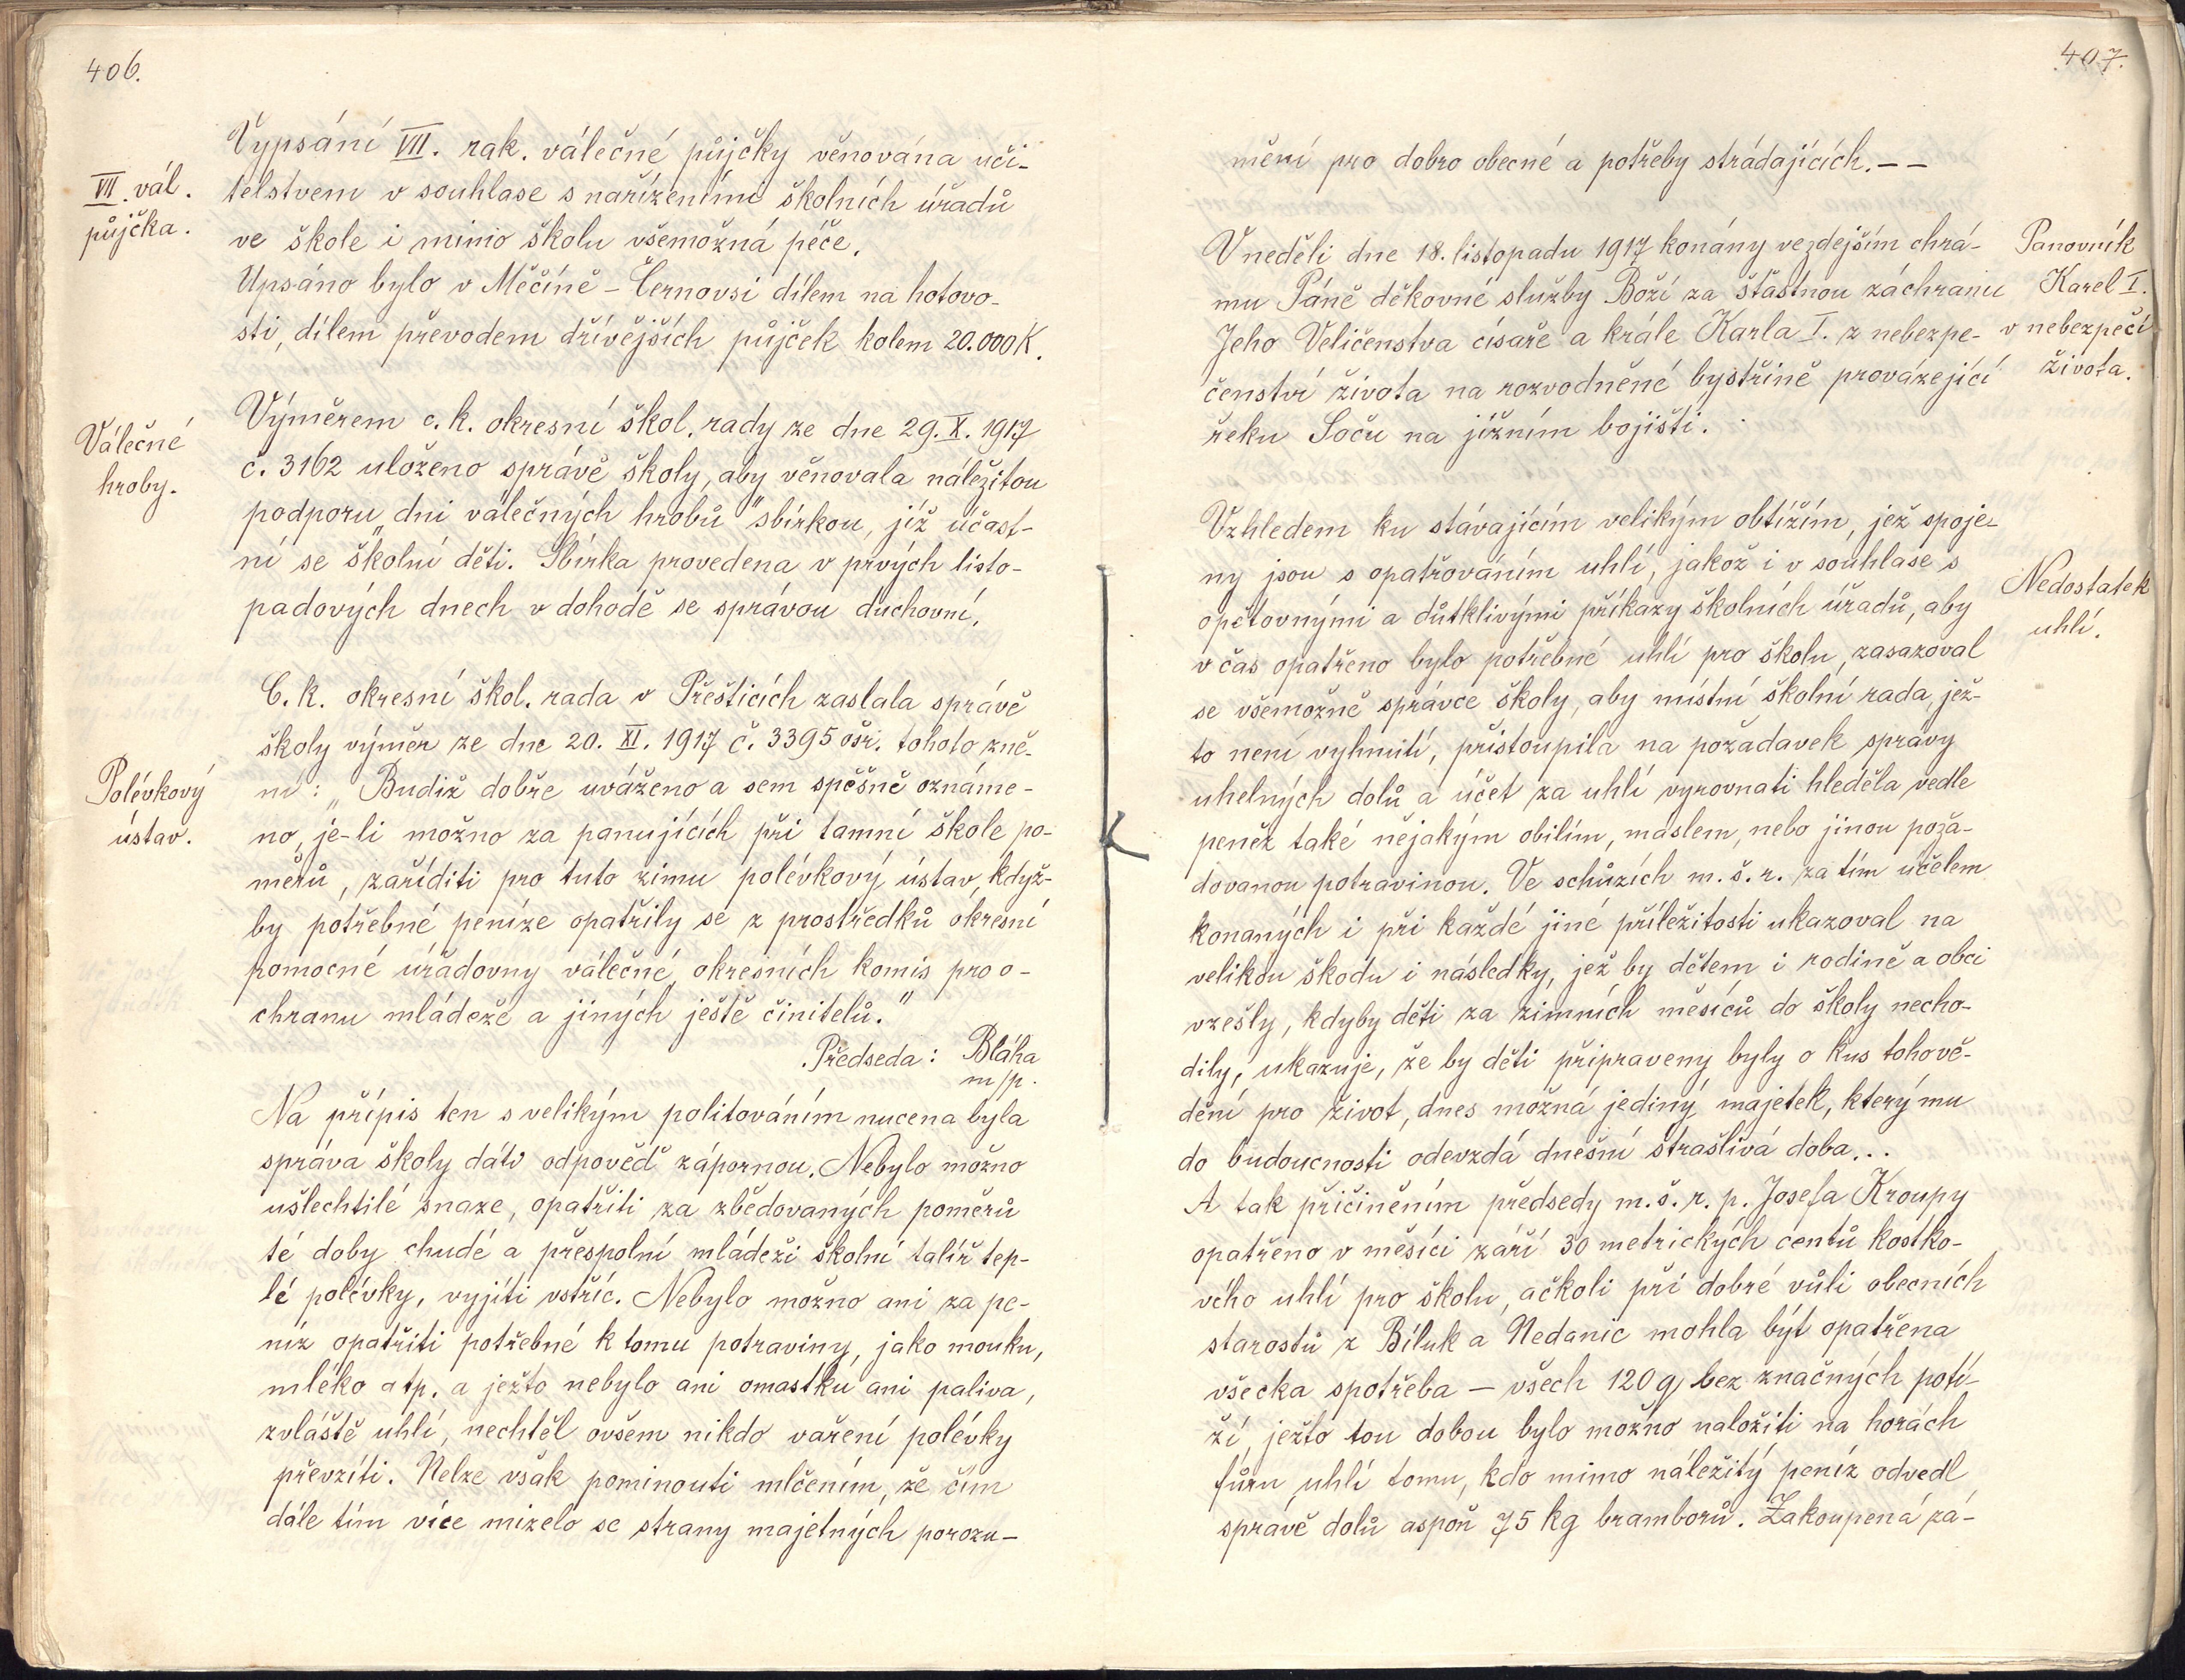 406.
Vypsání VII. rak. válečné půjčky věnována uči-
VII. vál.
půjčka.
telstvem v souhlase s nařízeními školních úřadů
ve škole i mimo školu všemožná péče.
Upsáno bylo v Měčíně - Černovsi dílem na hotovo-
sti, dílem převodem dřívějších půjček kolem 20.000 K.
Válečné
hroby.
Výměrem c. k. okresní škol. rady ze dne 29. X. 1917
č. 3162 uloženo správě školy, aby věnovala náležitou
podporu „dni válečných hrobů" sbírkou, jíž účast-
ní se školní děti. Sbírka provedena v prvých listo-
padových dnech v dohodě se správou duchovní.
C. k. okresní škol. rada v Přešticích zaslala správě
školy výměr ze dne 20. XI. 1917 č. 3395 ošr. tohoto zně-
Polévkový
ústav.
ní: „Budiž dobře uváženo a sem spěšně oznáme-
no, je-li možno za panujících při tamní škole po-
měrů, zaříditi pro tuto zimu polévkový ústav, když-
by potřebné peníze opatřily se z prostředků okresní
pomocné úřadovny válečné, okresních komis pro o-
chranu mládeže a jiných ještě činitelů."
Předseda: Bláha
m/p.
Na přípis ten s velikým politováním nucena byla
správa školy dáti odpověď zápornou. Nebylo možno
ušlechtilé snaze, opatřiti za zbědovaných poměrů
té doby chudé a přespolní mládeži školní talíř tep-
lé polévky, vyjíti vstříc. Nebylo možno ani za pe-
níz opatřiti potřebné k tomu potraviny, jako mouku,
mléko atp. a ježto nebylo ani omastku ani paliva,
zvláště uhlí, nechtěl ovšem nikdo vaření polévky
převzíti. Nelze však pominouti mlčením, že čím
dále tím více mizelo se strany majetných porozu-
407.
mění pro dobro obecné a potřeby strádajících. - -
Panovník
Karel I.
v nebezpečí
života.
V neděli dne 18. listopadu 1917 konány ve zdejším chrá-
mu Páně děkovné služby Boží za šťastnou záchranu
Jeho Veličenstva císaře a krále Karla I. z nebezpe-
čenství života na rozvodněné bystřině provázející
řeku Soču na jižním bojišti.
Vzhledem ku stávajícím velikým obtížím, jež spoje-
ny jsou s opatřováním uhlí, jakož i v souhlase s
Nedostatek
uhlí.
opětovnými a důtklivými příkazy školních úřadů, aby
v čas opatřeno bylo potřebné uhlí pro školu, zasazoval
se všemožně správce školy, aby místní školní rada, jež-
to není vyhnutí, přistoupila na požadavek správy
uhelných dolů a účet za uhlí vyrovnati hleděla vedle
peněz také nějakým obilím, máslem, nebo jinou poža-
dovanou potravinou. Ve schůzích m. š. r. za tím účelem
konaných i při každé jiné příležitosti ukazoval na
velikou škodu i následky, jež by dětem i rodině a obci
vzešly, kdyby děti za zimních měsíců do školy necho-
dily, ukazuje, že by děti připraveny byly o kus toho vě-
dění pro život, dnes možná jediný majetek, který mu
do budoucnosti odevzdá dnešní strašlivá doba...
A tak přičiněním předsedy m. š. r. p. Josefa Kroupy
opatřeno v měsíci září 30 metrických centů kostko-
vého uhlí pro školu, ačkoli při dobré vůli obecních
starostů z Bíluk a Nedanic mohla být opatřena
všecka spotřeba - všech 120 q, bez značných potí-
ží, ježto tou dobou bylo možno naložiti na horách
fůru uhlí tomu, kdo mimo náležitý peníz odvedl
správě dolů aspoň 75 kg bramborů. Zakoupená zá-